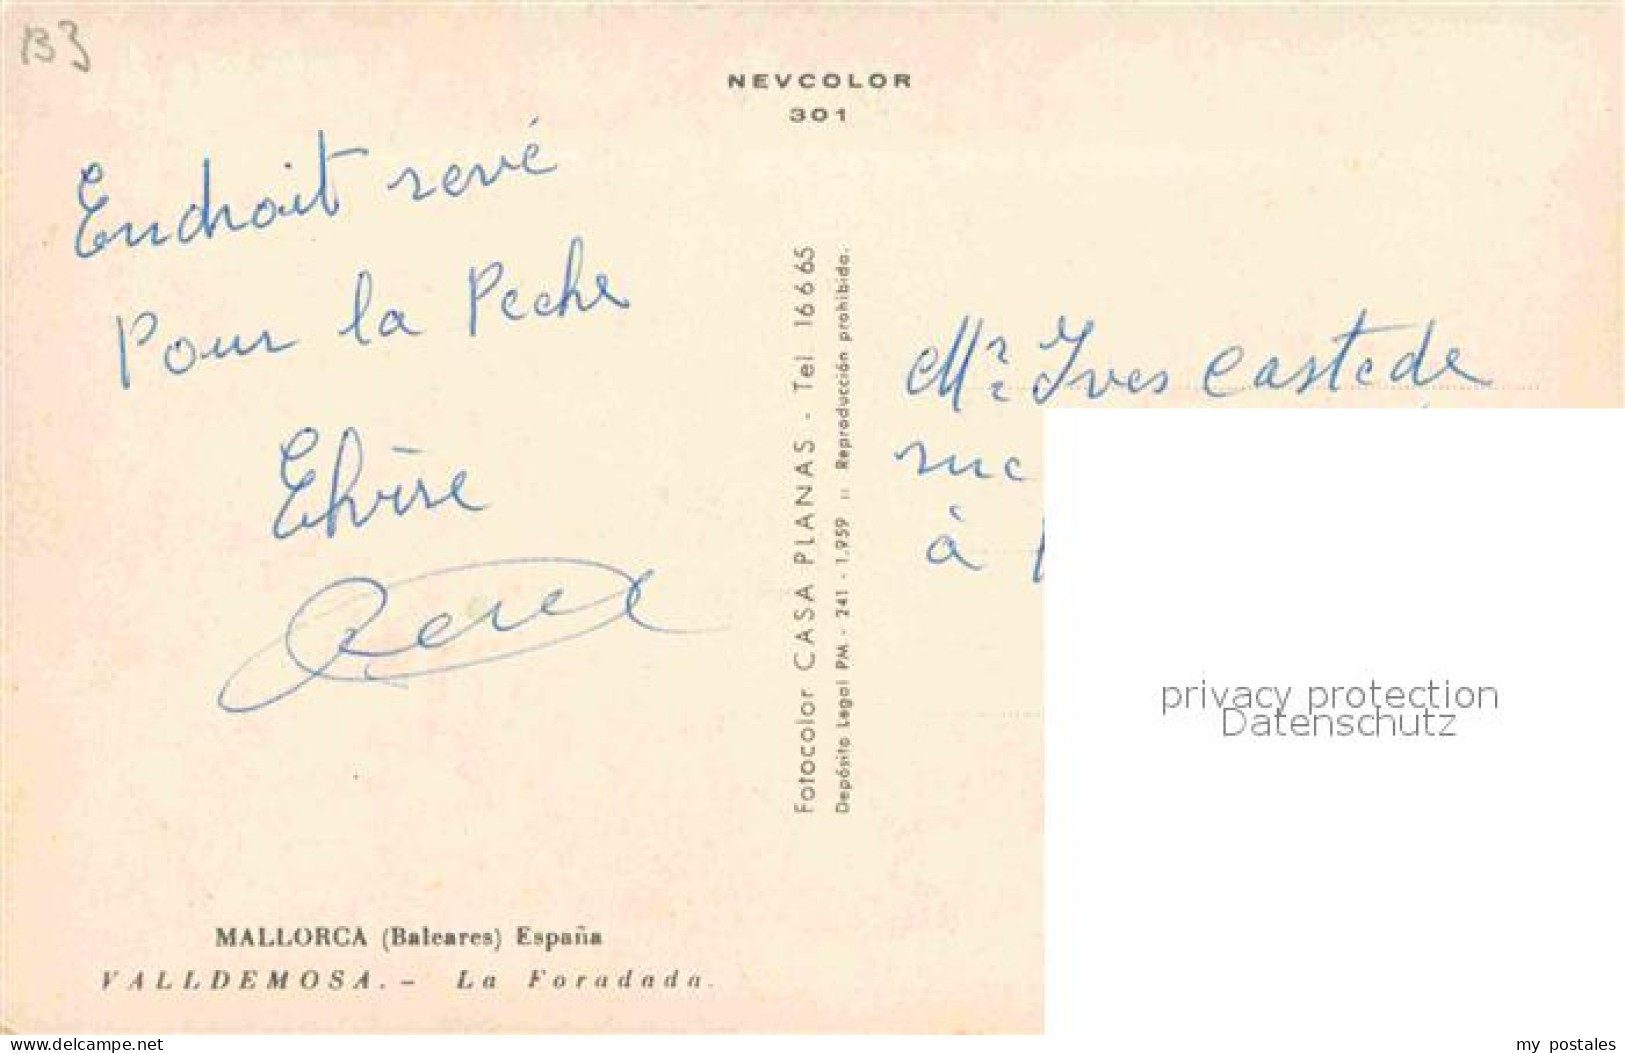 B3
NEVCOLOR
301
Endroit revé
Pour la Peche
Elvire
Fotocolor CASA PLANAS - Tel 16665
Depósito Legal PM - 241 - 1.959 :: Reproducción prohibida.
Mr Yves Castede
rue
à
privacy protection
Datenschutz
MALLORCA (Baleares) España
VALLDEMOSA. - La Foradada.
www.delcampe.net
my_postales